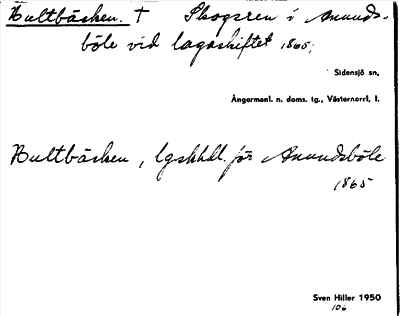 Bultbäcken. † Skogsren i Anunds-
böle vid lagaskiftet 1865;
Sidensjö sn,
Ångermanl. n. doms. tg., Västernorrl, l.
Bultbäcken, lgskhdl. för Anundsböle
1865
Sven Hiller 1950
106